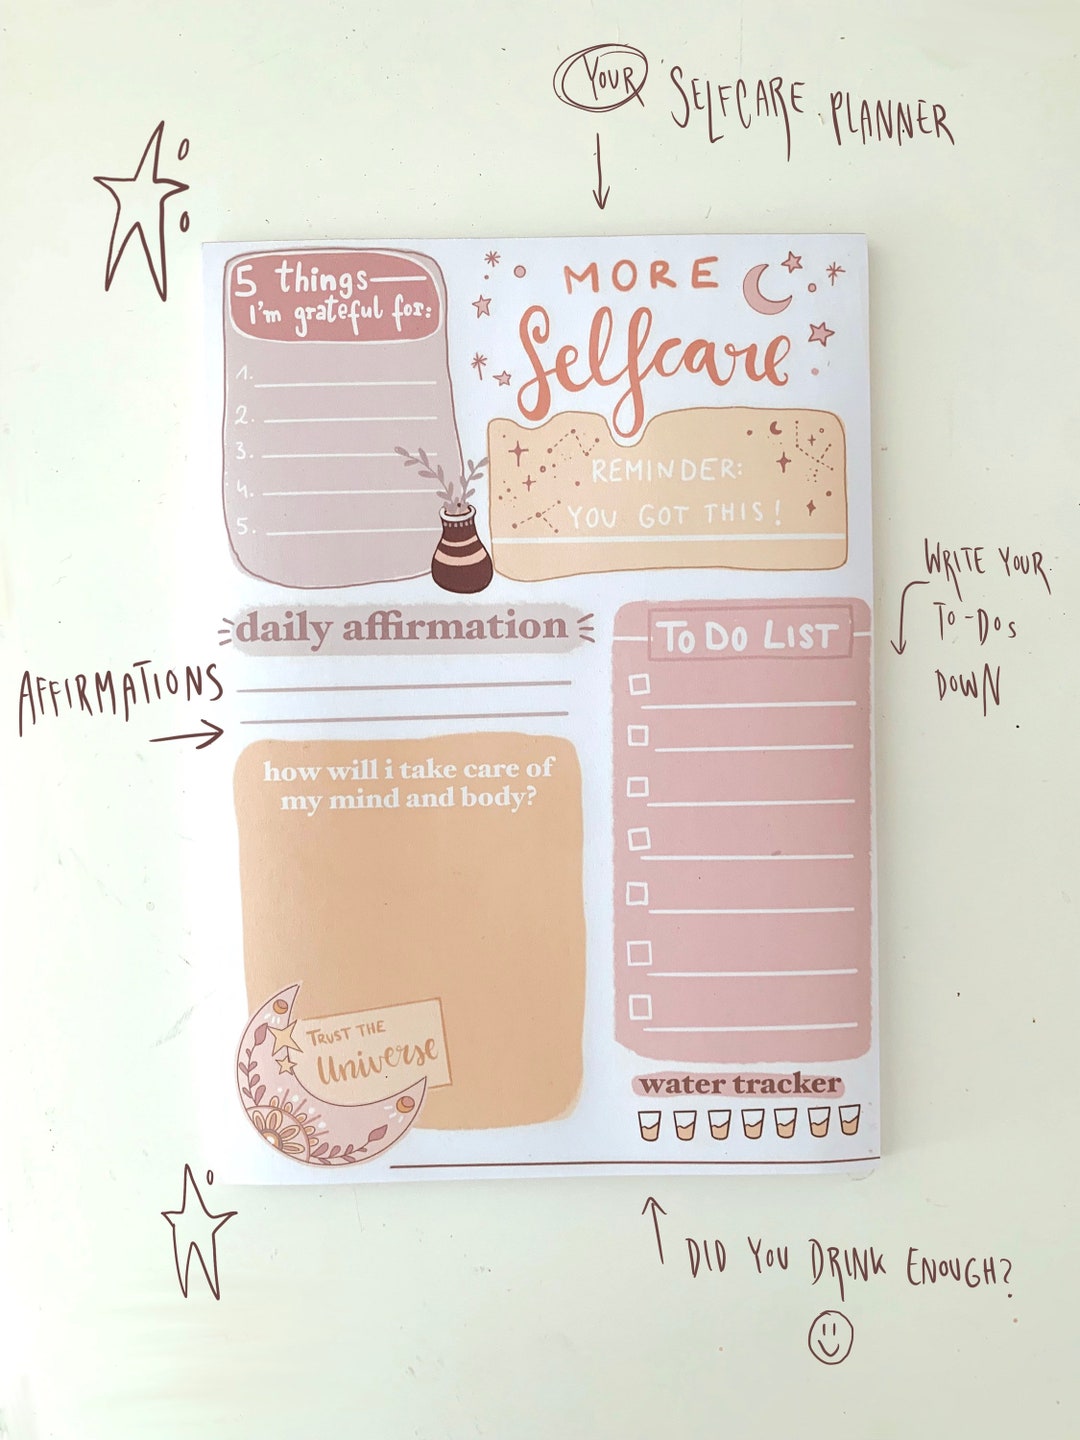 YOUR SELFCARE PLANNER
5 things
I'm grateful for:
1.
2.
3.
4.
5.
MORE
Selfcare
REMINDER:
YOU GOT THIS!
WRITE YOUR
TO-DOS
DOWN
daily affirmation
AFFIRMATIONS
how will i take care of
my mind and body?
TRUST THE
Universe
TO DO LIST
water tracker
DID YOU DRINK ENOUGH?